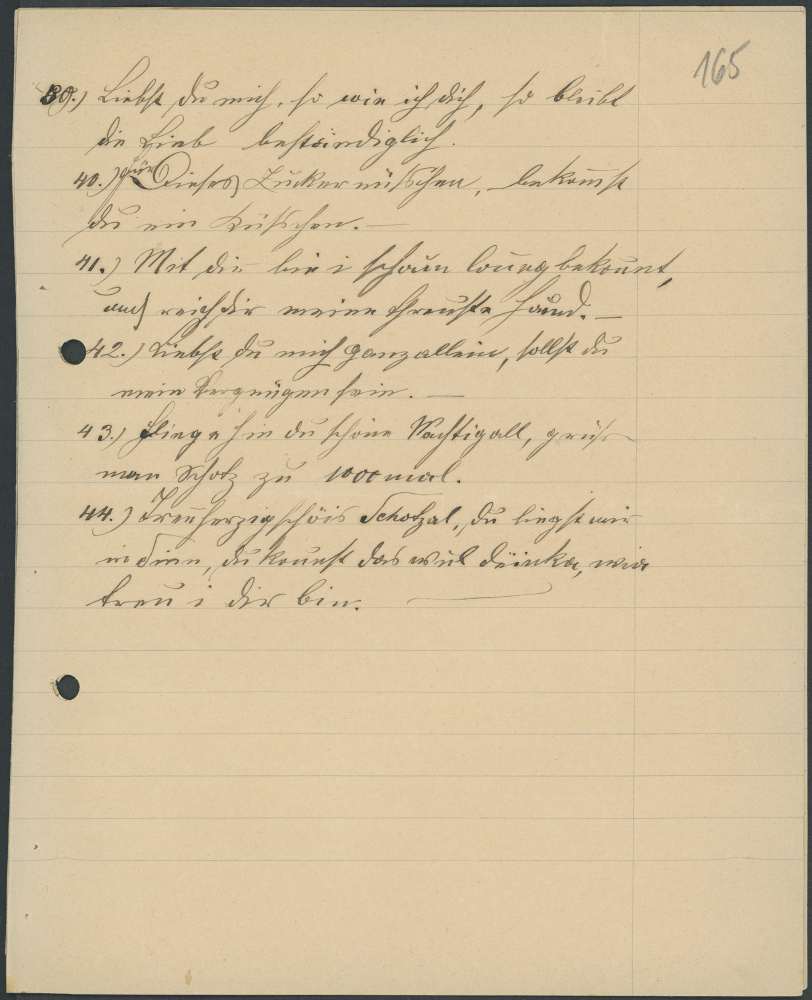 165
39.) Liebst du mich, so wie ich dich, so bleibt
die Lieb beständiglich.
40.) Für Dieses Zuckernüßchen, bekomst
du ein Küßchen. —
41.) Mit dir bin i schaun loung bekount,
und reich dir meine threuste Haund. —
42.) Liebst du mich ganz allein, sollst du
mein Vergnügen sein. —
43.) Fliege hin du schöne Nachtigall, grüß
man Schotz zu 1000 mal.
44.) Treuherzig schöis Schotzal, du liegst mir
in Sinn, du kounst das wul däinka, wia
treu i dir bin. —